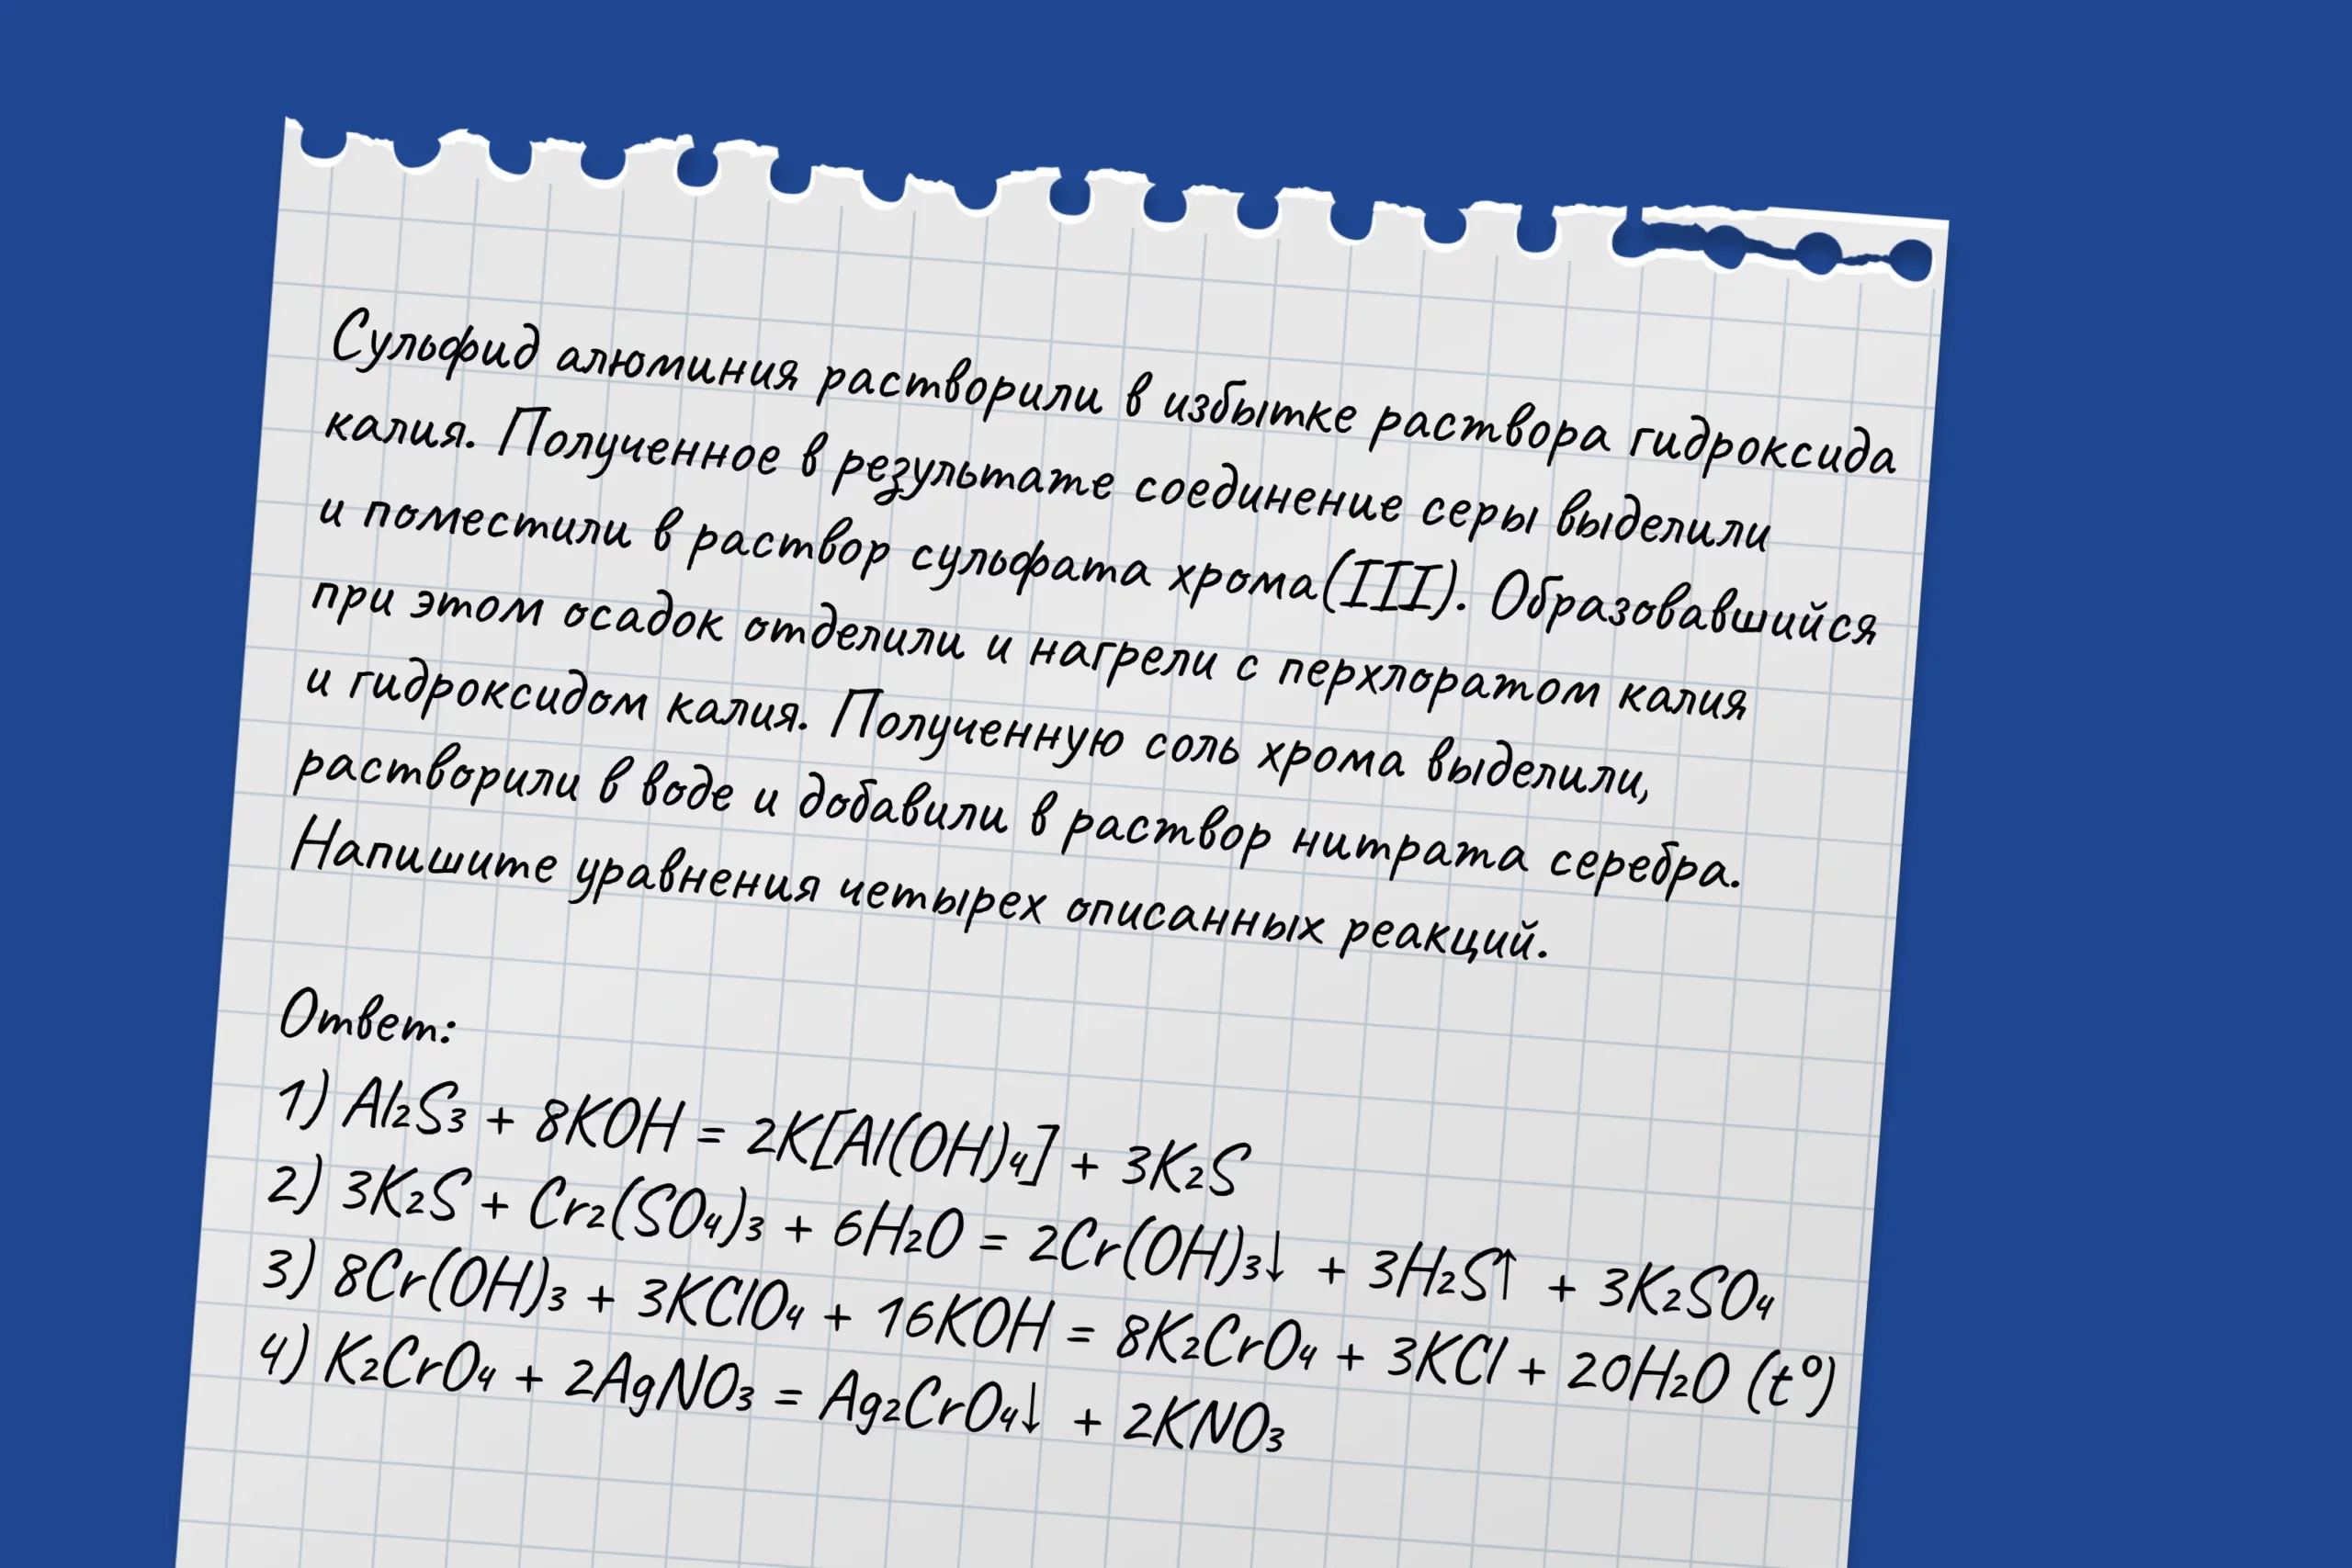 Сульфид алюминия растворили в избытке раствора гидроксида
калия. Полученное в результате соединение серы выделили
и поместили в раствор сульфата хрома(III). Образовавшийся
при этом осадок отделили и нагрели с перхлоратом калия
и гидроксидом калия. Полученную соль хрома выделили,
растворили в воде и добавили в раствор нитрата серебра.
Напишите уравнения четырех описанных реакций.
Ответ:
1) Al₂S₃ + 8KOH = 2K[Al(OH)₄] + 3K₂S
2) 3K₂S + Cr₂(SO₄)₃ + 6H₂O = 2Cr(OH)₃↓ + 3H₂S↑ + 3K₂SO₄
3) 8Cr(OH)₃ + 3KClO₄ + 16KOH = 8K₂CrO₄ + 3KCl + 20H₂O (t°)
4) K₂CrO₄ + 2AgNO₃ = Ag₂CrO₄↓ + 2KNO₃